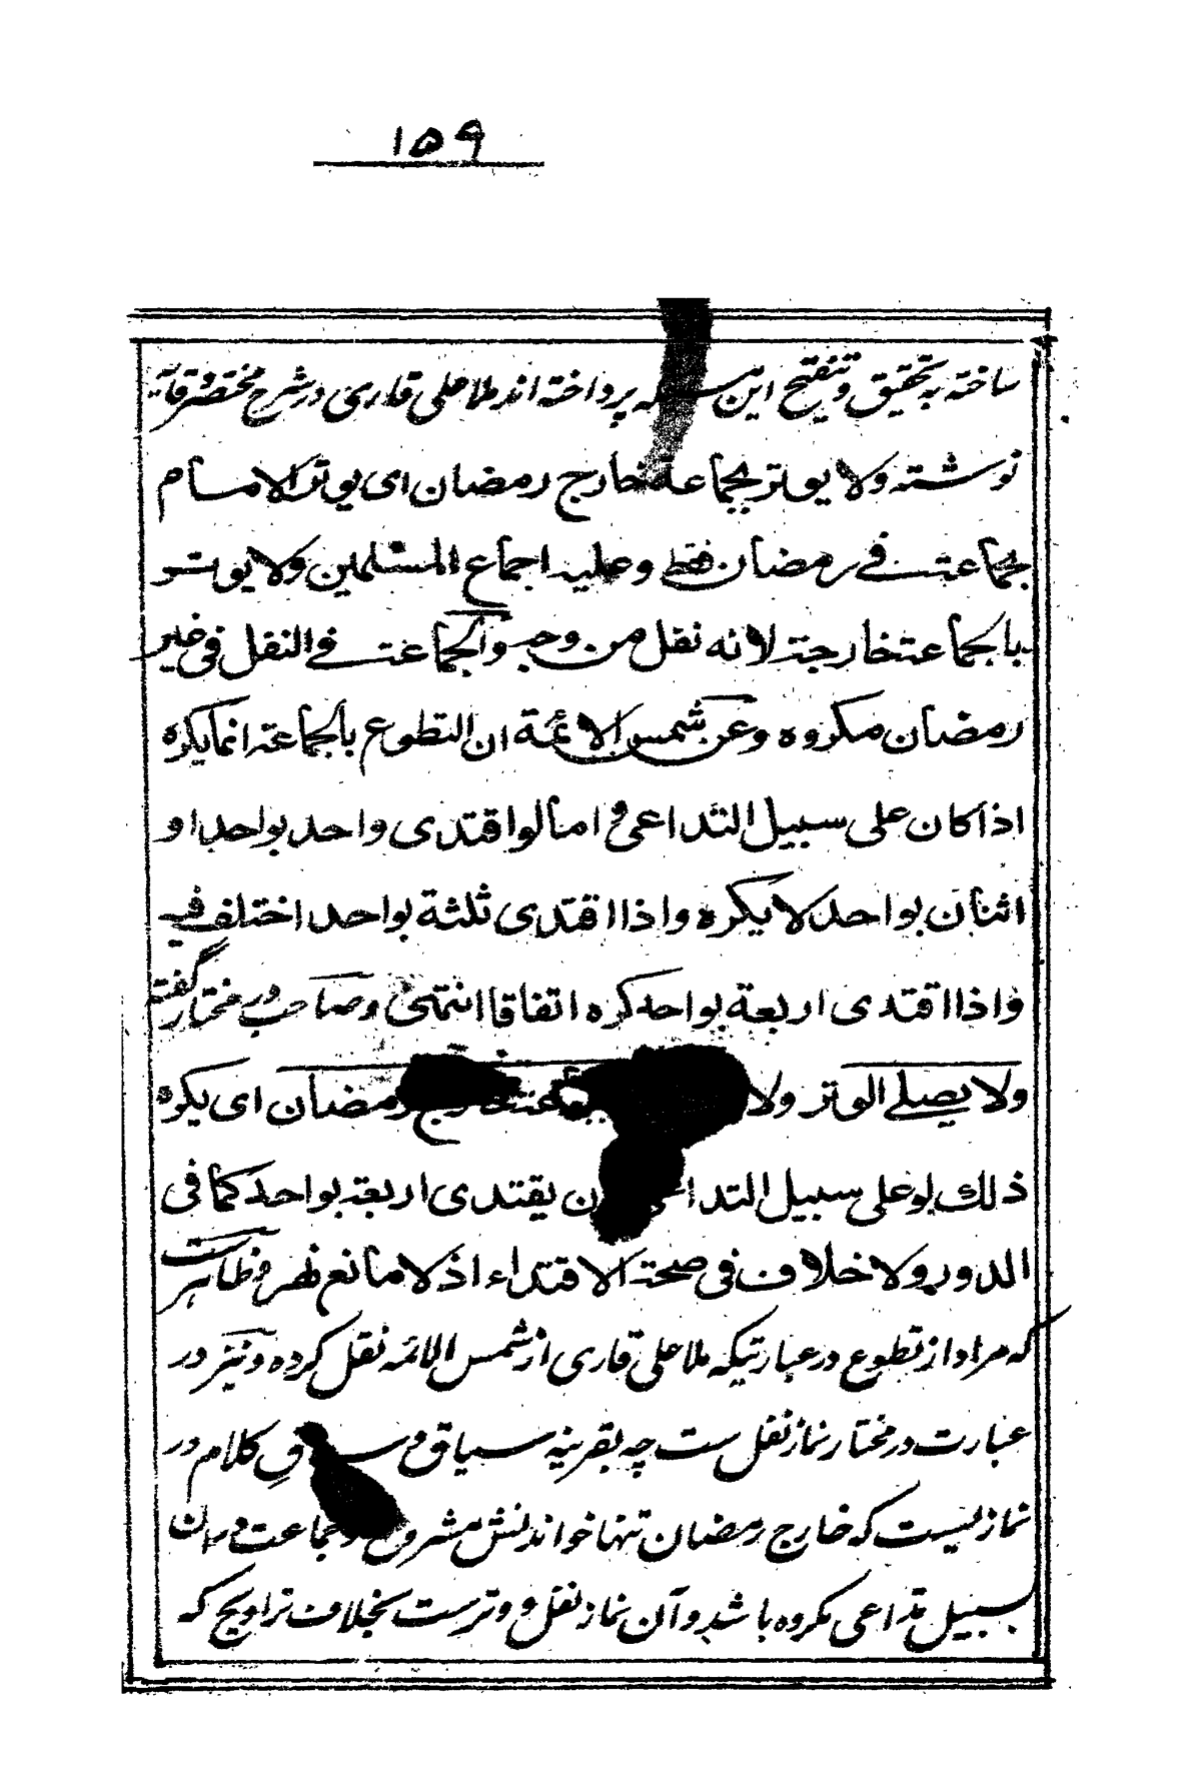 ۱۵۹
ساخته به تحقیق و تنقیح این مسئله پرداخته اند ملا علی قاری در شرح مختصر وقایه
نوشته ولا یوتر بجماعة خارج رمضان ای یوتر الامام
بجماعت فی رمضان فقط وعلیه اجماع المسلمین ولا یوتر
بالجماعة خارجة لانه نفل من وجه والجماعت فی النفل فی غیر
رمضان مکروه وعن شمس الائمة ان التطوع بالجماعة انما یکره
اذا کان علی سبیل التداعی و اما لو اقتدی واحد بواحد او
اثنان بواحد لا یکره واذا اقتدی ثلثة بواحد اختلف فیه
واذا اقتدی اربعة بواحد کره اتفاقا انتهی وصاحب در مختار گفته
ولا یصلی الوتر ولا رمضان ای یکره
ذلك لو علی سبیل التداعی ن یقتدی اربعة بواحد کما فی
الدرر ولا خلاف فی صحة الاقتداء اذ لا مانع نهر و ظاهرست
که مراد از تطوع در عبارتیکه ملا علی قاری از شمس الائمه نقل کرده و نیز در
عبارت در مختار نماز نفل ست چه بقرینه سیاق و کلام در
نماز یست که خارج رمضان تنها خواندنش مشروع و جماعت در ان
بسبیل تداعی مکروه باشد و آن نماز نفل و وترست بخلاف تراویح که